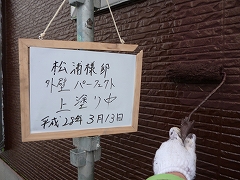 松浦様邸
外壁 パーフェクト
上塗り中
平成28年3月13日